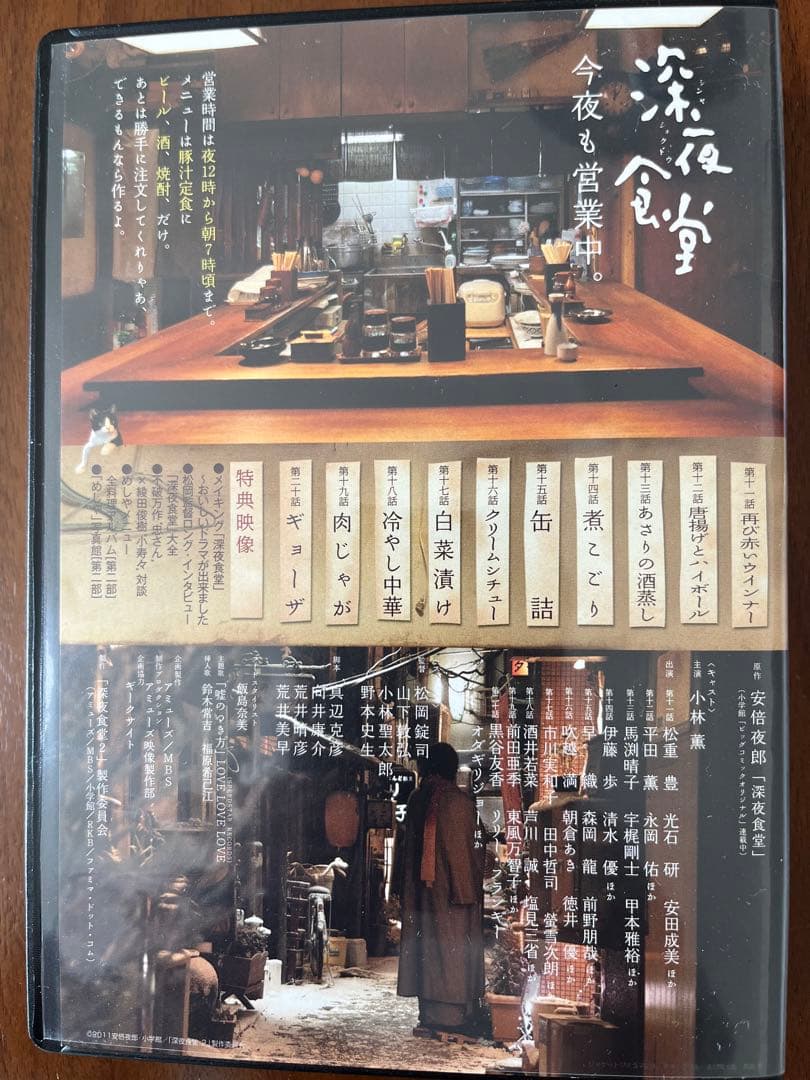 深夜食堂
シンヤショクドウ
今夜も営業中。
営業時間は夜12時から朝7時頃まで。
メニューは豚汁定食に
ビール、酒、焼酎、だけ。
あとは勝手に注文してくれりゃあ、
できるもんなら作るよ。
第十一話 再び赤いウインナー
第十二話 唐揚げとハイボール
第十三話 あさりの酒蒸し
第十四話 煮こごり
第十五話 缶詰
第十六話 クリームシチュー
第十七話 白菜漬け
第十八話 冷やし中華
第十九話 肉じゃが
第二十話 ギョーザ
特典映像
●メイキング「深夜食堂」
～おいしいドラマが出来ました
●松岡監督ロング・インタビュー
「深夜食堂」大全
●不破万作“忠さん”
×綾田俊樹“小寿々”対談
●めしやメニュー
全料理アルバム[第二部]
●「めしや」写真館[第二部]
原作 安倍夜郎「深夜食堂」
(小学館「ビッグコミックオリジナル」連載中)
〈キャスト〉
主演 小林 薫
出演 第十一話 松重 豊 光石 研 安田成美 ほか
第十二話 平田 薫 永岡 佑 ほか
第十三話 馬渕晴子 宇梶剛士 甲本雅裕 ほか
第十四話 伊藤 歩 清水 優 ほか
第十五話 早織 森岡 龍 前野朋哉 ほか
第十六話 吹越 満 朝倉あき 徳井 優 ほか
第十七話 市川実和子 田中哲司 螢雪次朗 ほか
第十八話 酒井若菜 芦川 誠 塩見三省 ほか
第十九話 前田亜季 東風万智子 ほか
第二十話 黒谷友香 リリー・フランキー
オダギリジョー ほか
監督 松岡錠司
山下敦弘
小林聖太郎
野本史生
脚本 真辺克彦
向井康介
荒井晴彦
荒井美早
フードスタイリスト 飯島奈美
主題歌 「嘘のつき方」LOVE LOVE LOVE
(SPEEDSTAR RECORDS)
挿入歌 鈴木常吉 福原希己江
企画製作 アミューズ/MBS
制作プロダクション アミューズ映像製作部
企画協力 ギークサイト
製作 「深夜食堂2」製作委員会
(アミューズ/MBS/小学館/RKB/ファミマ・ドット・コム)
©2011安倍夜郎・小学館/「深夜食堂2」製作委員会